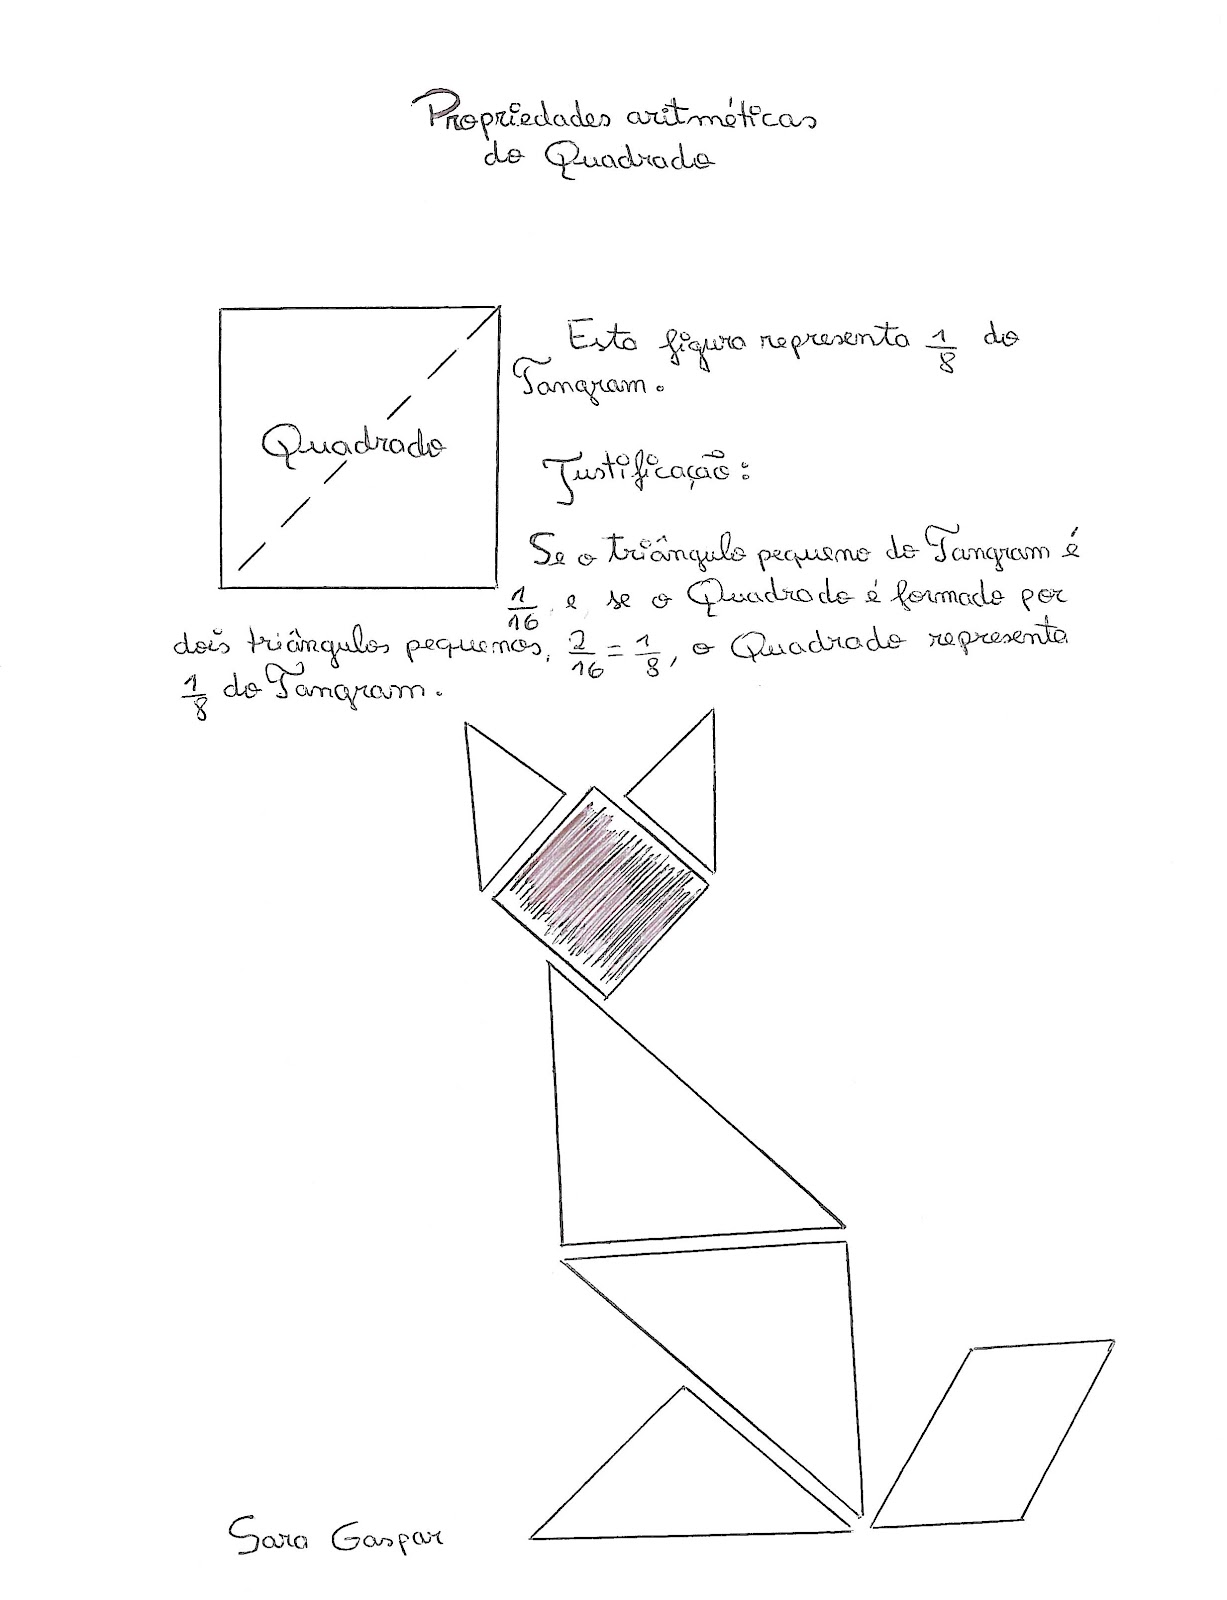 Propriedades aritméticas
do Quadrado
Esta figura representa 1/8 do
Tangram.
Quadrado
Justificação:
Se o triângulo pequeno do Tangram é
1/16 e se o Quadrado é formado por
dois triângulos pequenos, 2/16 = 1/8, o Quadrado representa
1/8 do Tangram.
Sara Gaspar